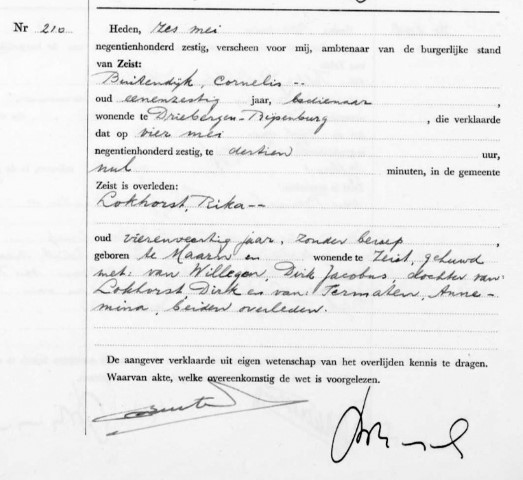 Nr 210
Heden, zes mei
negentienhonderd zestig, verscheen voor mij, ambtenaar van de burgerlijke stand
van Zeist:
Buitendijk, Cornelis --
oud eenenzestig jaar, bedienaar ,
wonende te Driebergen-Rijsenburg , die verklaarde
dat op vier mei
negentienhonderd zestig, te dertien uur,
nul minuten, in de gemeente
Zeist is overleden:
Lokhorst, Rika --
oud vierenveertig jaar, zonder beroep ,
geboren te Maarn en wonende te Zeist, gehuwd
met: van Willegen, Dirk Jacobus, dochter van:
Lokhorst, Dirk en van: Termaten, Anne-
mina, beiden overleden.
De aangever verklaarde uit eigen wetenschap van het overlijden kennis te dragen.
Waarvan akte, welke overeenkomstig de wet is voorgelezen.